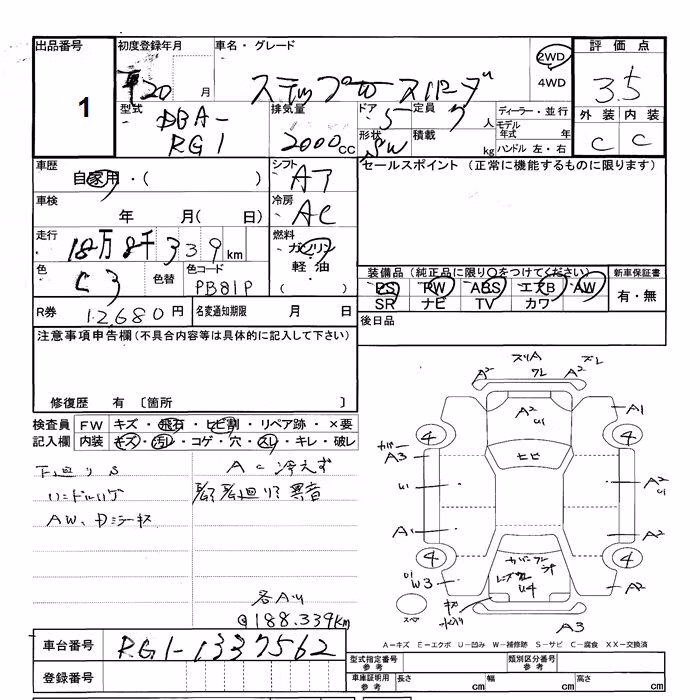 出品番号
1
初度登録年月
平20 月
車名・グレード
ステップWGスパーダ
2WD
4WD
評価点
3.5
外装 内装
C C
型式
DBA-
RG1
排気量
2000cc
ドア
5
定員
7人
形状
SW
積載
kg
ディーラー・並行
モデル年式 年
ハンドル 左・右
車歴
自家用・( )
シフト
AT
セールスポイント (正常に機能するものに限ります)
車検
年 月( 日)
冷房
AC
走行
18万8千339km
燃料
ガソリン
軽・油
( )
色
色替
色コード
PB81P
装備品 (純正品に限り○をつけてください)
PS PW ABS エアB AW
SR ナビ TV カワ
新車保証書
有・無
R券
12,680円
名変通知期限 月 日
後日品
注意事項申告欄(不具合内容等は具体的に記入して下さい)
修復歴 有 〔箇所 〕
検査員記入欄
FW キズ・飛石・ヒビ割・リペア跡・×要
内装 キズ・汚レ・コゲ・穴・スレ・キレ・破レ
下廻りS
AC冷えず
異音
AW、Dミラーキズ
各AU
@188.339km
スリA ズレ
A² ワレ A²
A² U1
A1
4 4
カバー
A3
ヒビ
U1
A² U1
A1
A²
4 4
U1
W3
カバーワレ
U4
A2
スペア
キズ
A3
A=キズ E=エクボ U=凹み W=補修跡 S=サビ C=腐食 XX=交換済
車台番号
RG1-1337562
登録番号
型式指定番号
参考
類別区分番号
参考
車庫証明用
参考
長さ cm 幅 cm 高さ cm